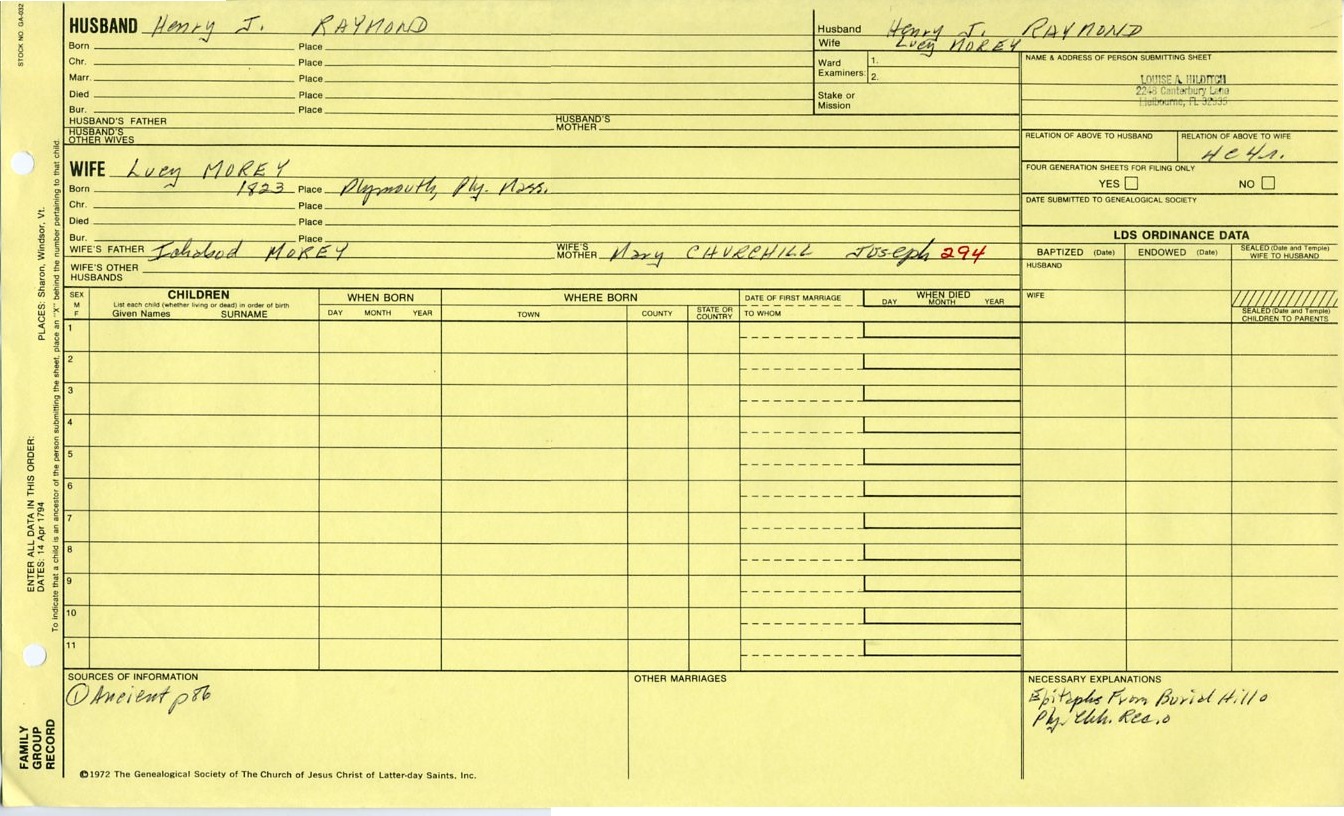 STOCK NO GA-032
HUSBAND Henry J. RAYMOND
Born Place
Chr. Place
Marr. Place
Died Place
Bur. Place
HUSBAND'S FATHER HUSBAND'S MOTHER
HUSBAND'S OTHER WIVES
Husband Henry J. RAYMOND
Wife Lucy MOREY
Ward Examiners: 1.
2.
Stake or Mission
NAME & ADDRESS OF PERSON SUBMITTING SHEET
LOUISE A. HILDITCH
2248 Canterbury Lane
Melbourne, FL 32935
RELATION OF ABOVE TO HUSBAND RELATION OF ABOVE TO WIFE
4C4r.
FOUR GENERATION SHEETS FOR FILING ONLY
YES NO
DATE SUBMITTED TO GENEALOGICAL SOCIETY
WIFE Lucy MOREY
Born 1823 Place Plymouth, Ply. Mass.
Chr. Place
Died Place
Bur. Place
WIFE'S FATHER Ichabod MOREY WIFE'S MOTHER Mary CHURCHILL Joseph 294
WIFE'S OTHER HUSBANDS
LDS ORDINANCE DATA
BAPTIZED (Date) ENDOWED (Date) SEALED (Date and Temple) WIFE TO HUSBAND
HUSBAND
WIFE
SEALED (Date and Temple) CHILDREN TO PARENTS
SEX M F
CHILDREN
List each child (whether living or dead) in order of birth
Given Names SURNAME
WHEN BORN
DAY MONTH YEAR
WHERE BORN
TOWN COUNTY STATE OR COUNTRY
DATE OF FIRST MARRIAGE
TO WHOM
WHEN DIED
DAY MONTH YEAR
1
2
3
4
5
6
7
8
9
10
11
SOURCES OF INFORMATION
① Ancient p86
OTHER MARRIAGES
NECESSARY EXPLANATIONS
Epitaphs From Burial Hill o
Ply. Chh. Rec. o
©1972 The Genealogical Society of The Church of Jesus Christ of Latter-day Saints, Inc.
FAMILY GROUP RECORD
ENTER ALL DATA IN THIS ORDER:
DATES: 14 Apr 1794 PLACES: Sharon, Windsor, Vt.
To indicate that a child is an ancestor of the person submitting the sheet, place an "X" behind the number pertaining to that child.